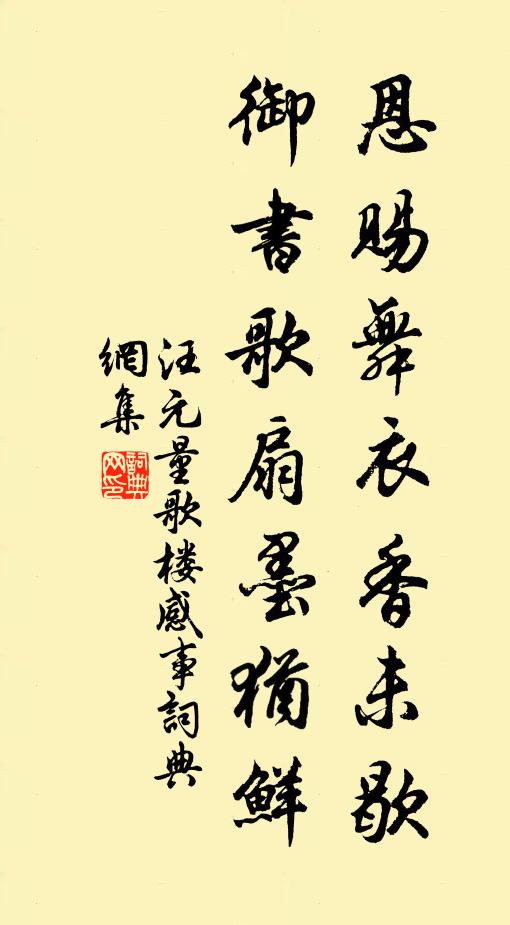 恩賜舞衣香未歇
御書歌扇墨猶鮮
汪元量歌楼感事詞典
網集
詞典網印